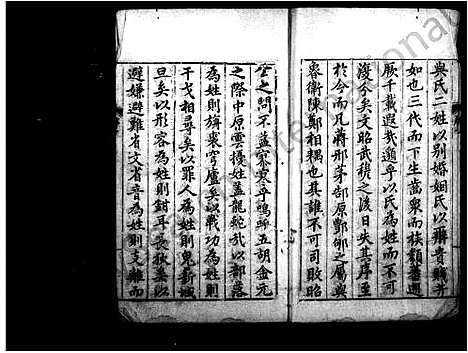 與氏二姓以別婚姻氏以辨貴賤并
如也三代而下生齒衆而族類蕃迺
厥千載遐哉邈乎以氏為姓而不可
復永矣文昭武穆之後日失其序至
於今而凡蔣邢茅郜原酆郇之屬與
魯衛陳鄭相耦也其誰不可司敗昭
公之問不蓋寥寥乎嗚呼五胡金元
之際中原雲擾姓蓋龍蛇矣以部落
為姓則旃裘穹廬矣以戰功為姓則
干戈相尋矣以罪人為姓則鬼薪城
旦矣以形容為姓則鉗耳長狄矣以
避嫌避難省文省音為姓則支離而